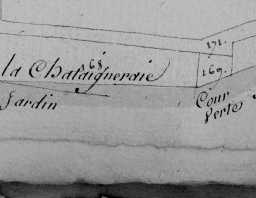 171.
68
la Chataigneraie
169.
Jardin
Cour
Verte